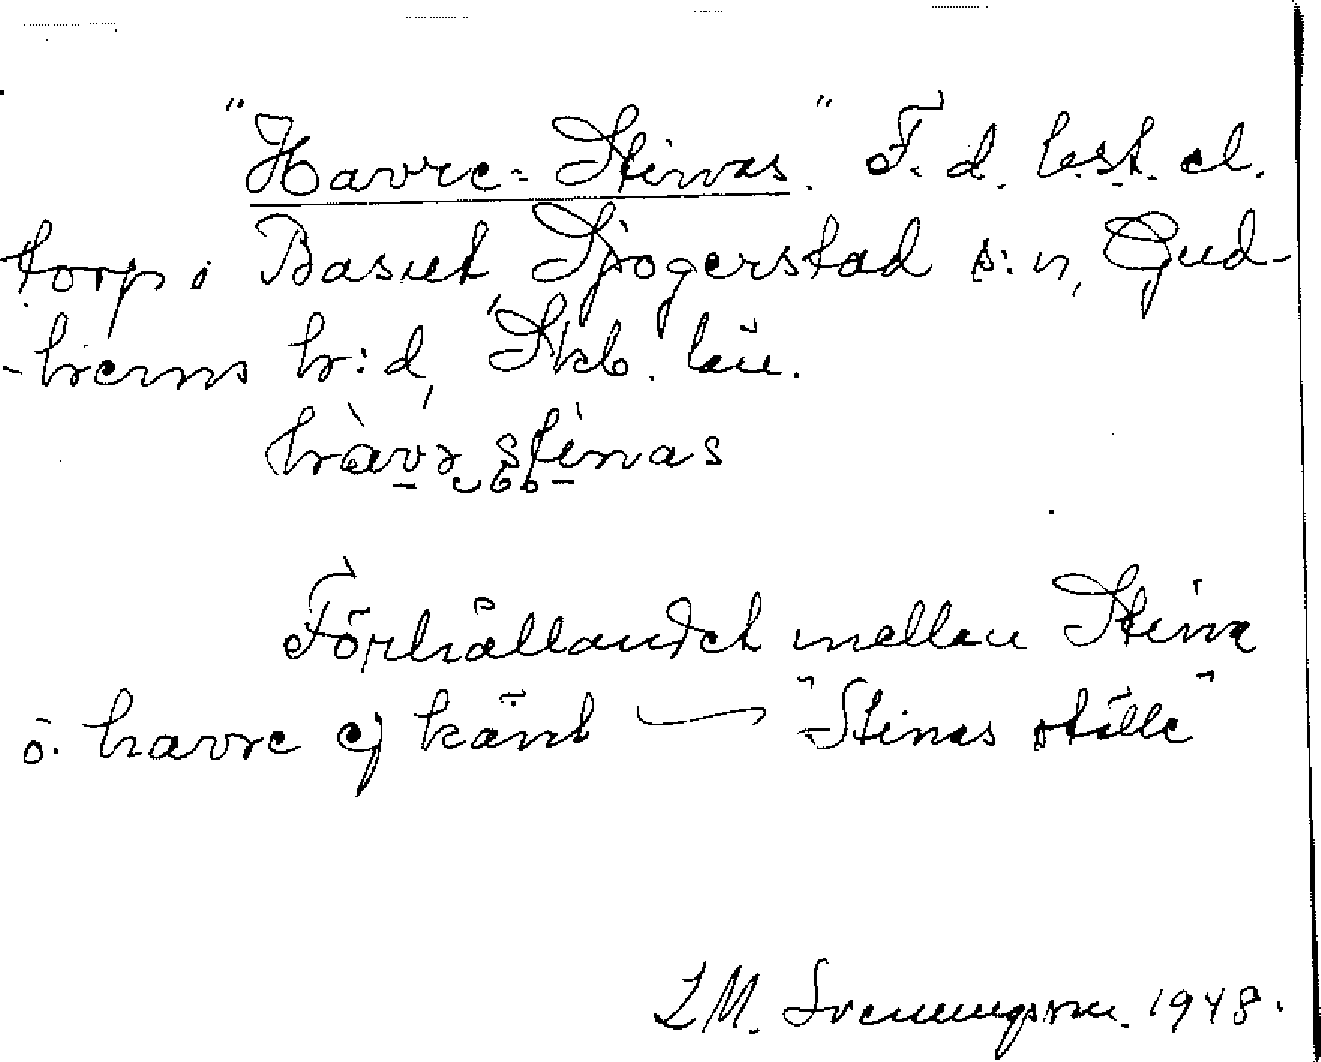 "Havre-Stinas." F. d. bst. el.
torp i Baset, Sjogerstad s:n, Gud-
-hems h:d, Skb. län.
hàvrə stìnas
Förhållandet mellan Stina
o. havre ej känt — "Stinas ställe"
L M. Svenungsson. 1948.